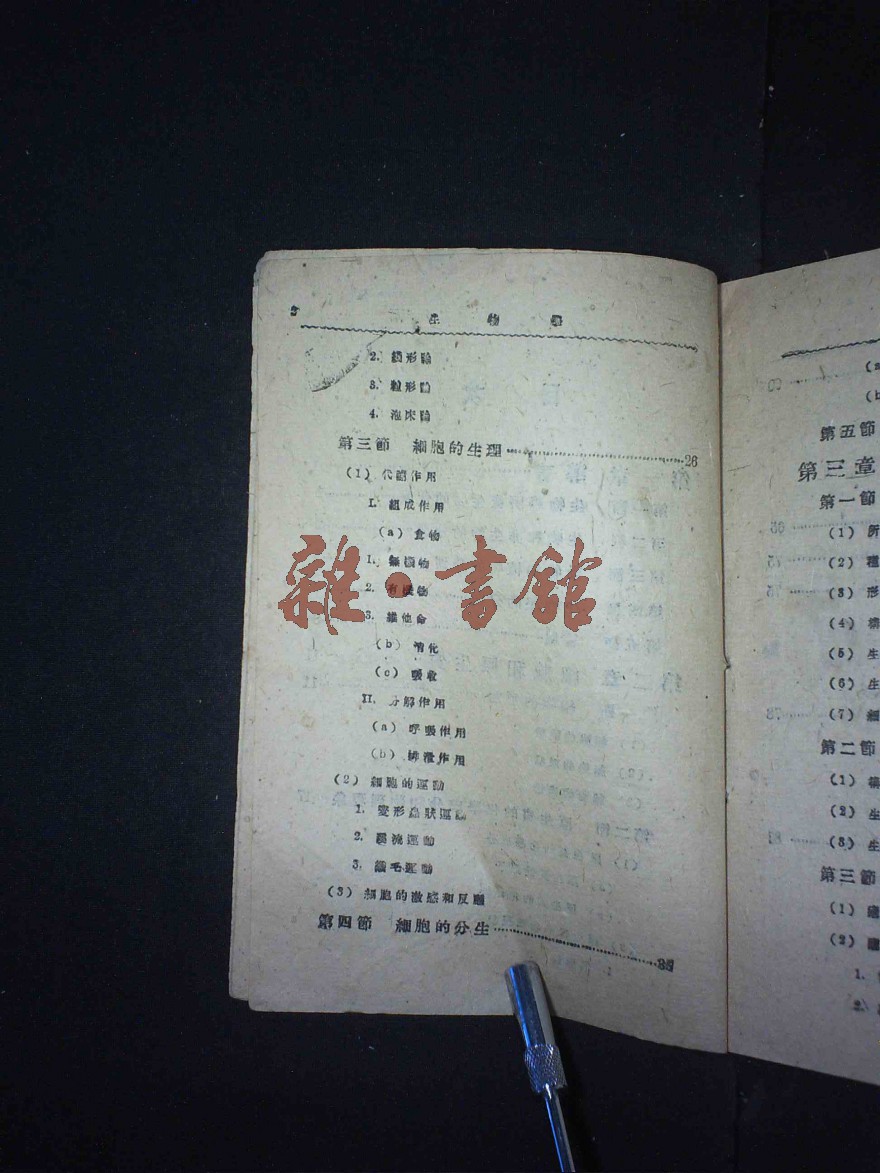 2 生物學
2. 網形論
3. 粒形論
4. 泡沫論
第三節 細胞的生理 26
(1) 代謝作用
I. 組成作用
(a) 食物
1. 無機物
2. 有機物
3. 維他命
(b) 消化
(c) 吸收
II. 分解作用
(a) 呼吸作用
(b) 排泄作用
(2) 細胞的運動
1. 變形蟲狀運動
2. 運動
3. 纖毛運動
(3) 細胞的激感和反應
第四節 細胞的分生
雜·書館
(a
(b
第五節
第三章
第一節
(1) 所
(2) 種
(3) 形
(4) 構
(5) 生
(6) 生
(7) 細
第二節
(1) 構
(2) 生
(3) 生
第三節
(1)
(2)
1.
2.